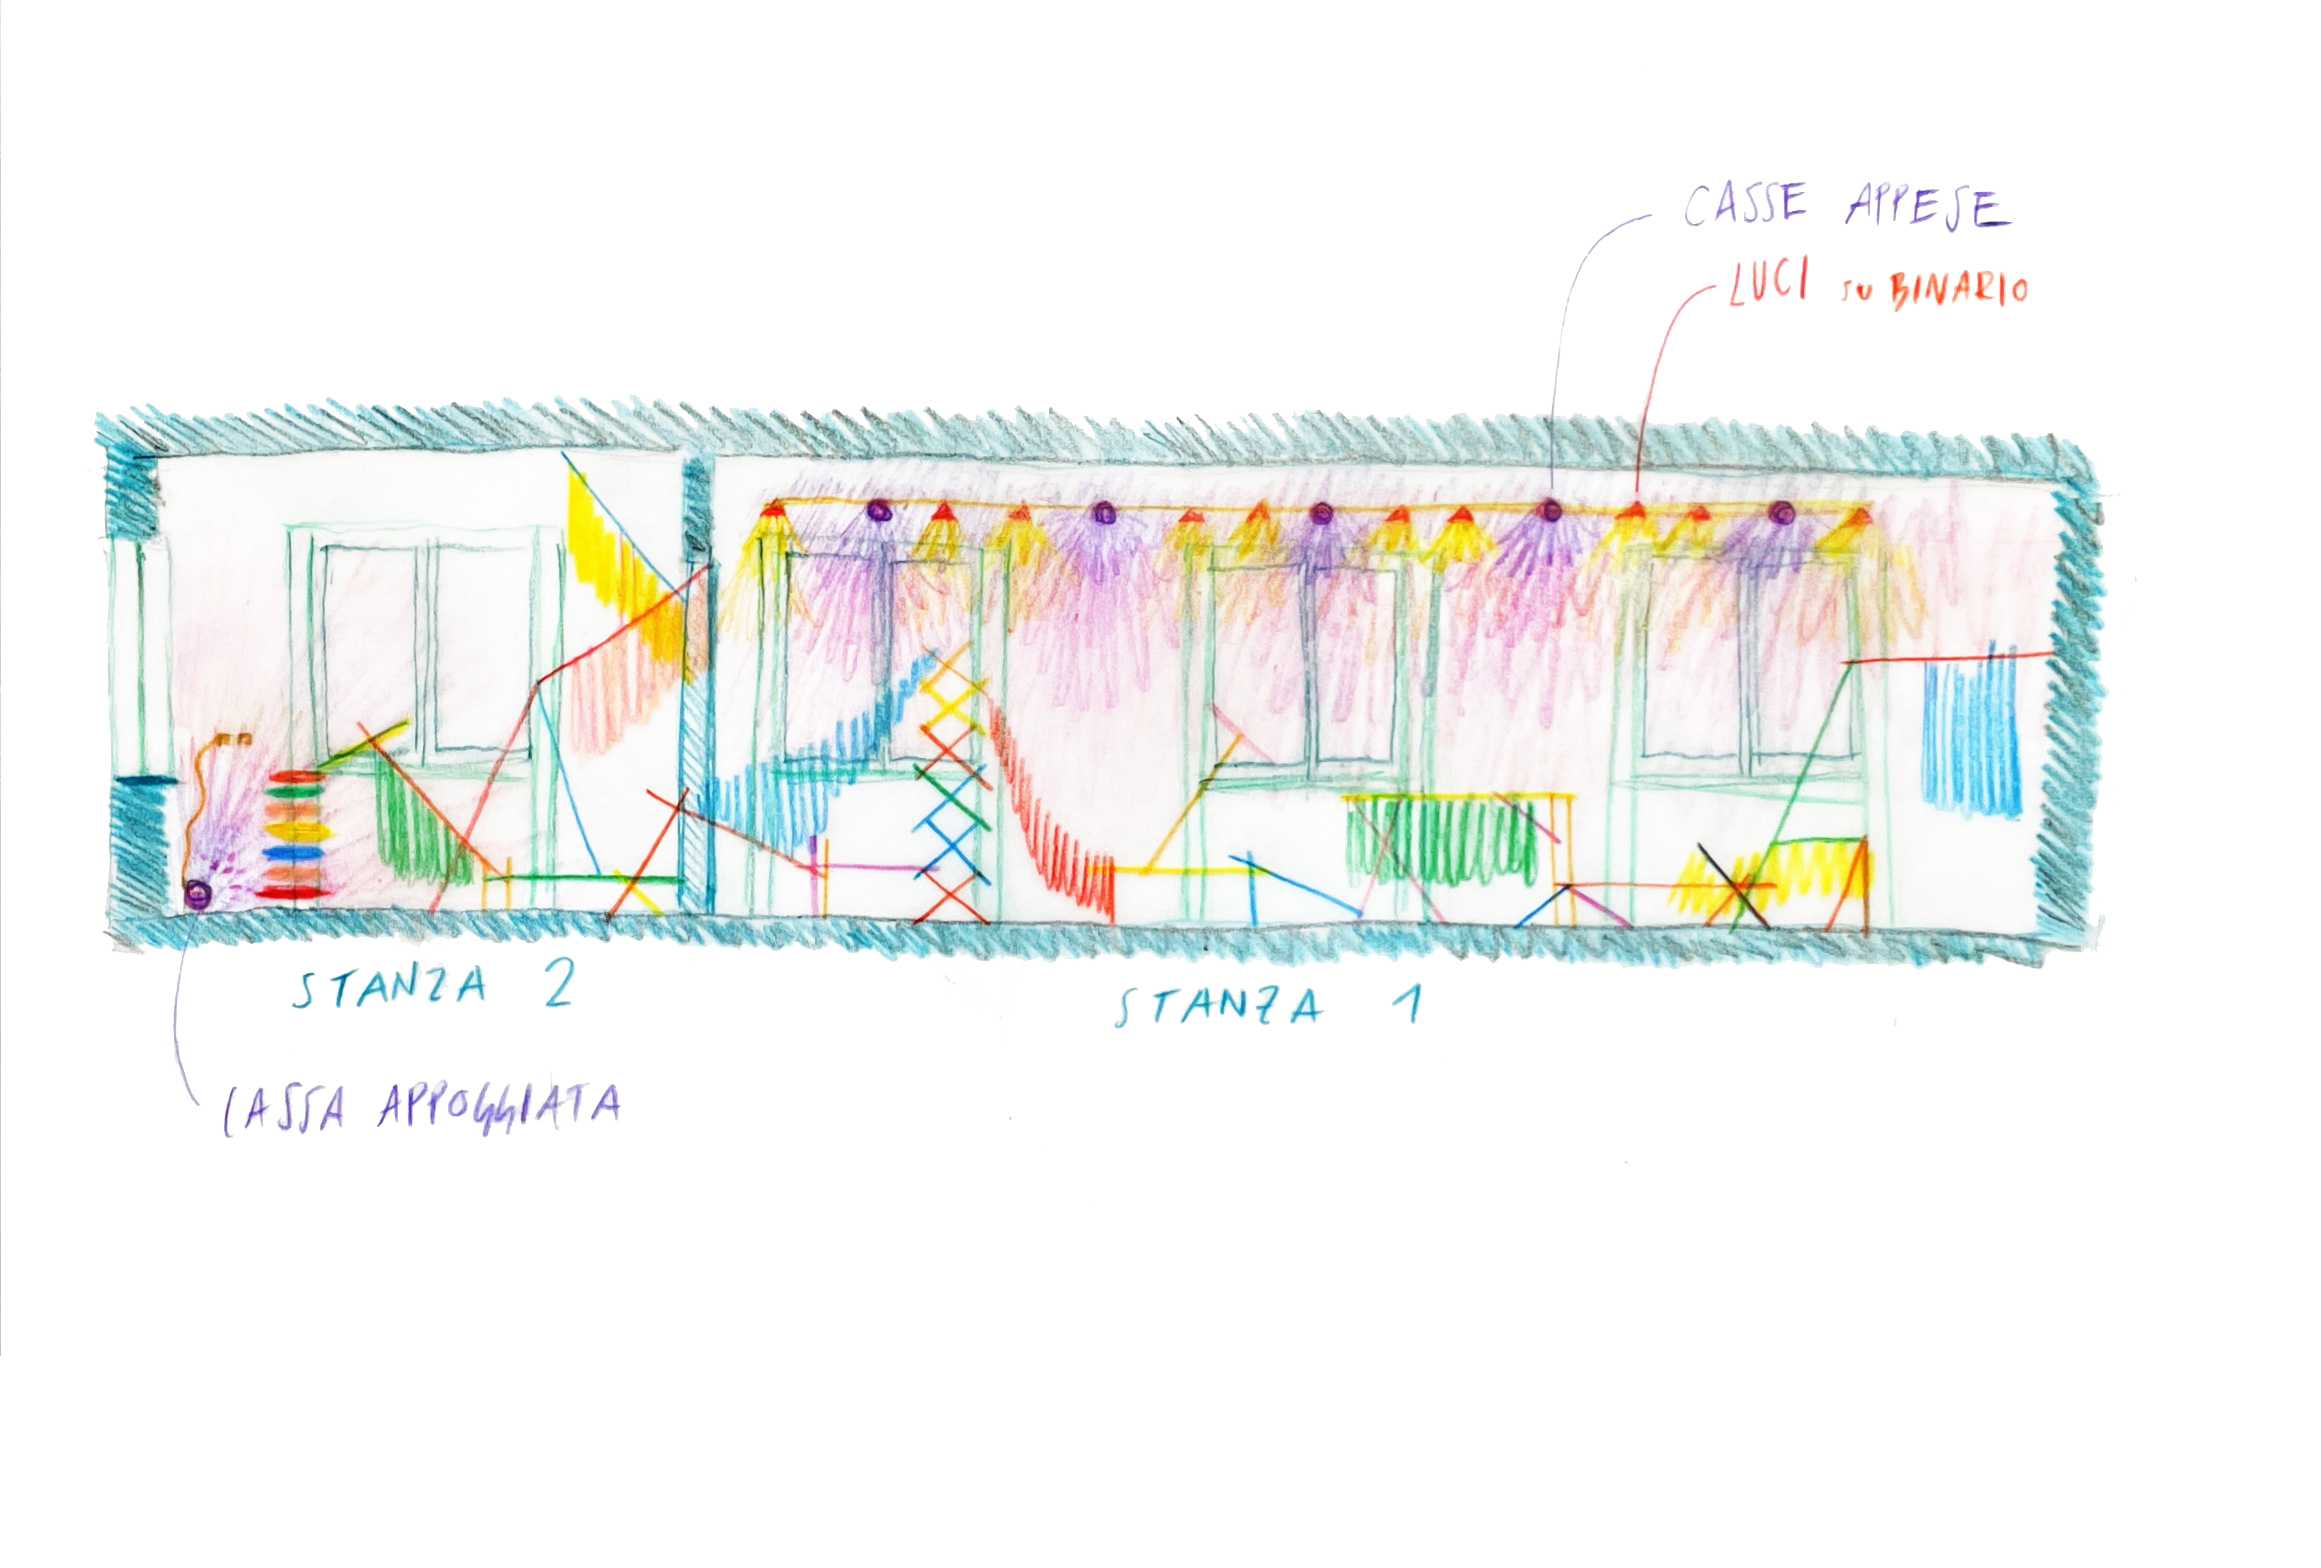 CASSE APPESE
LUCI SU BINARIO
STANZA 2
STANZA 1
CASSA APPOGGIATA